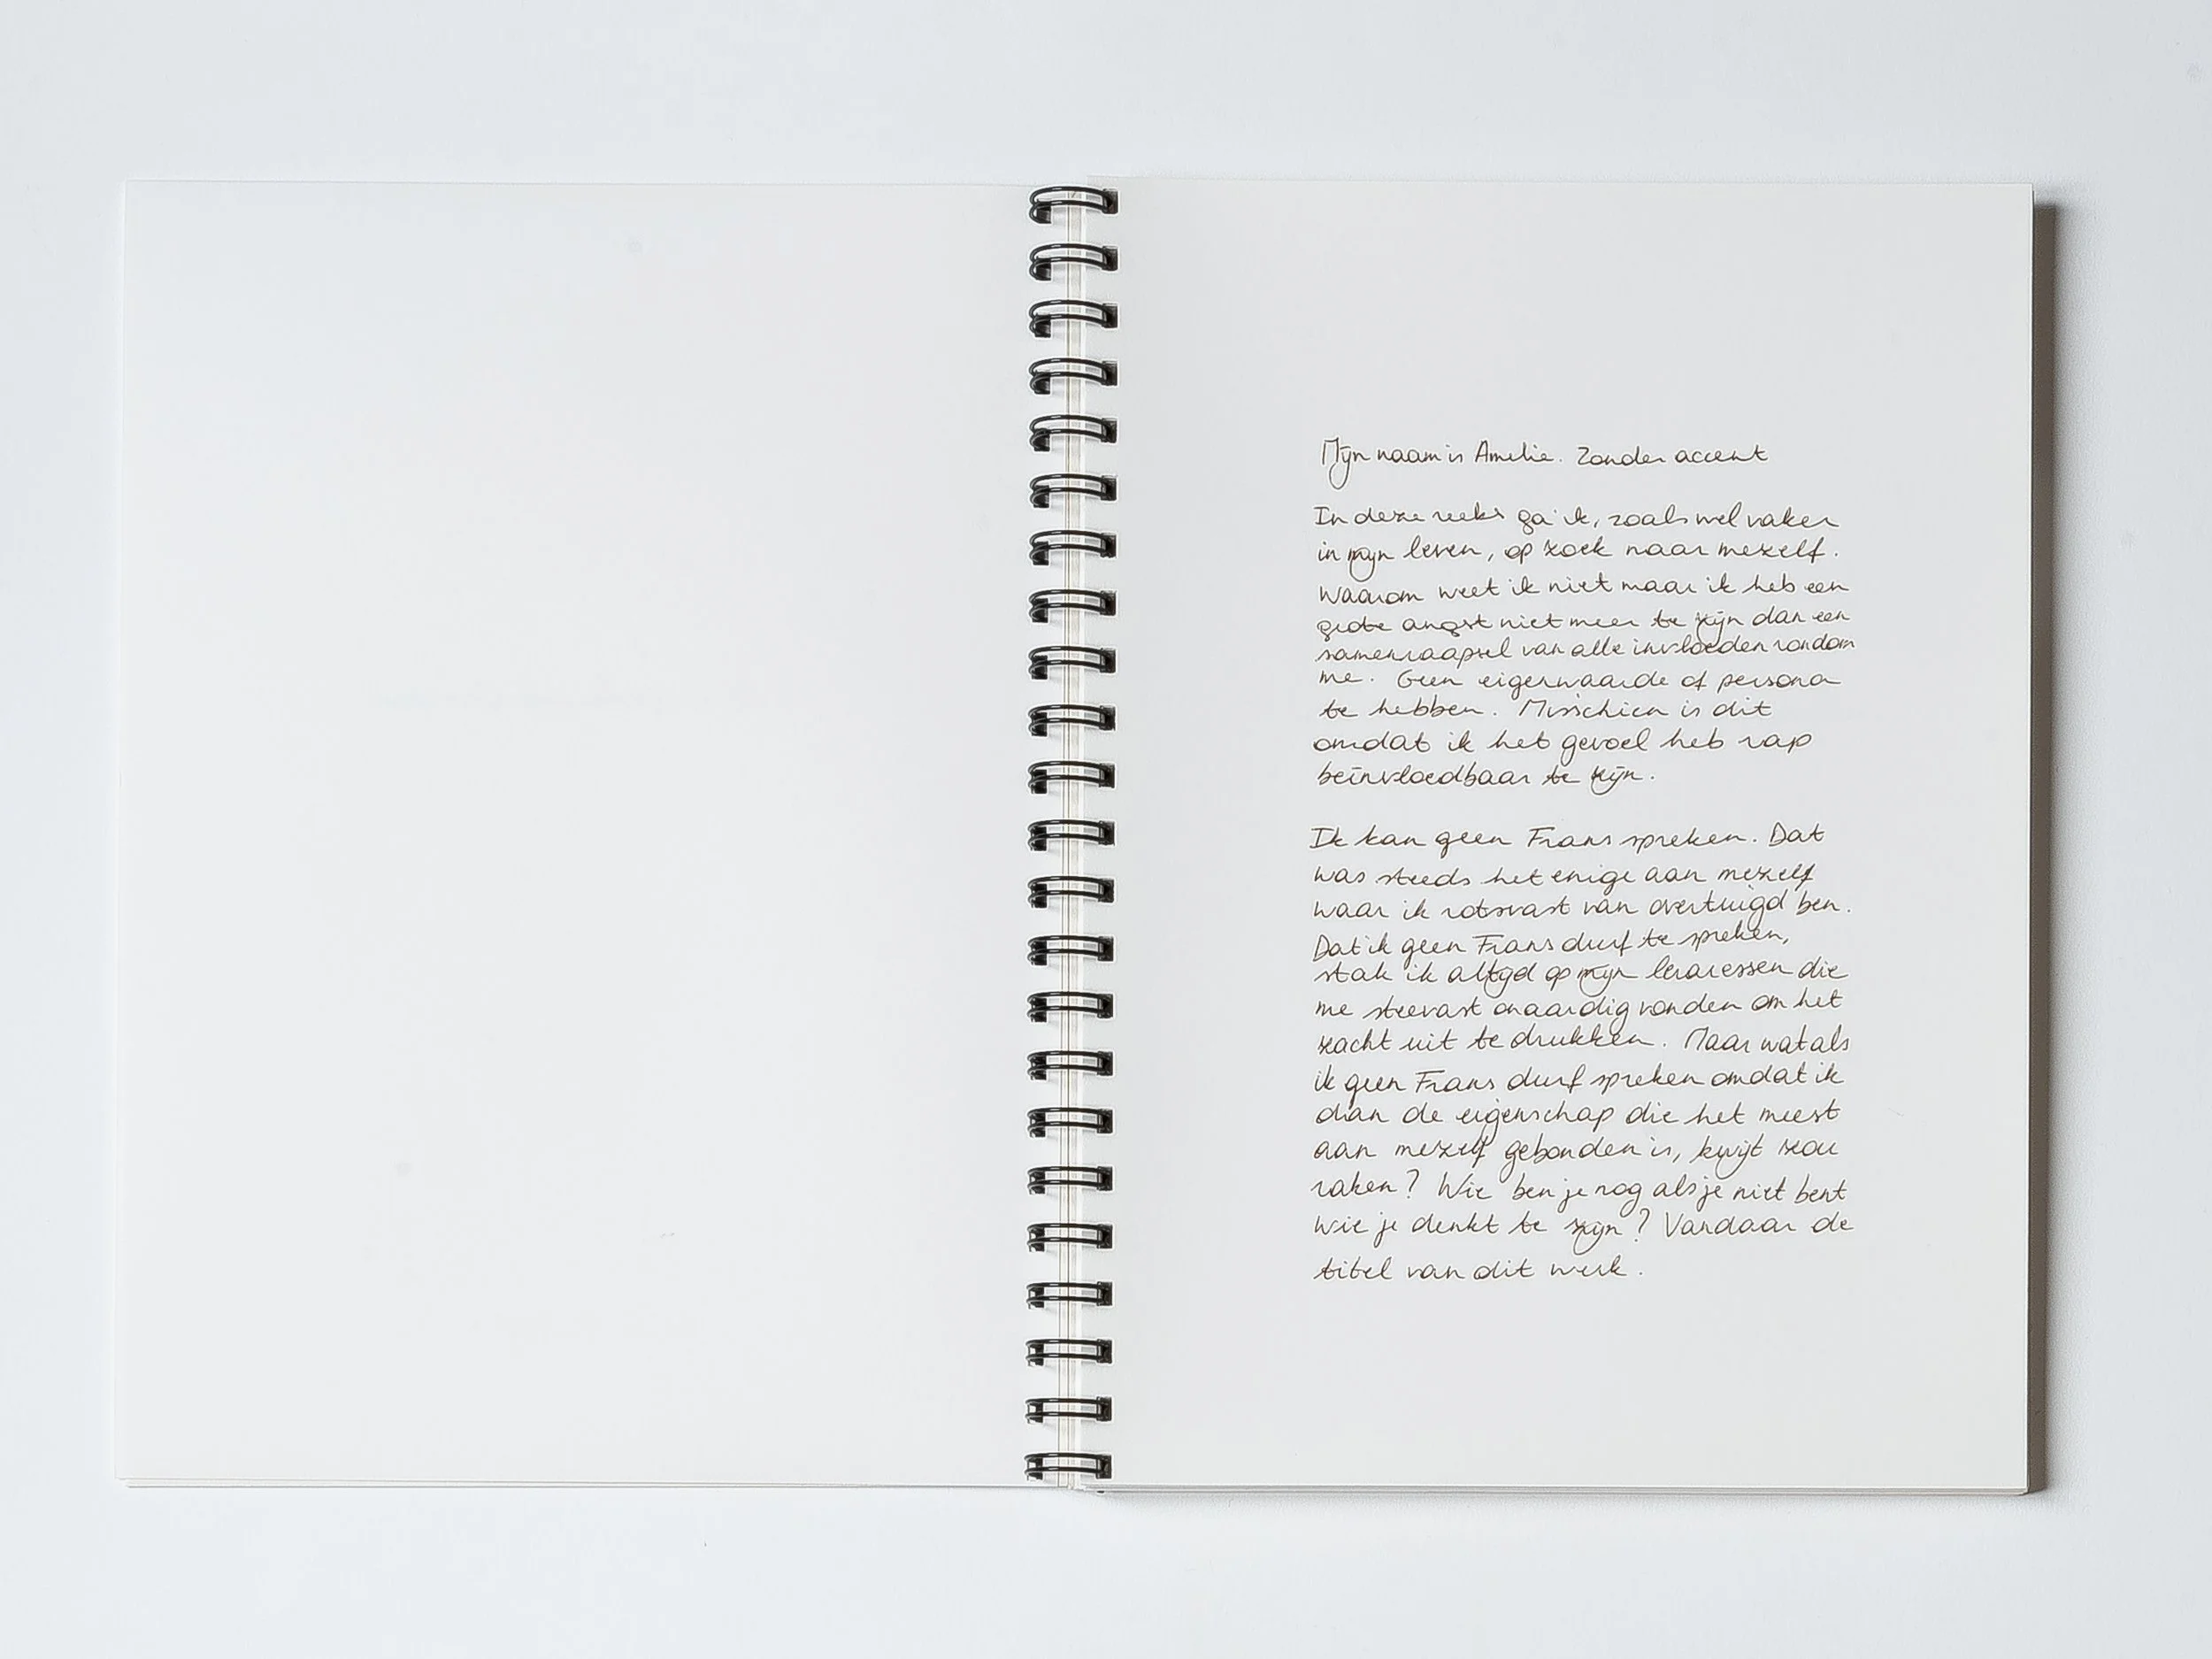 Mijn naam is Amelie. Zonder accent
In deze reeks ga ik, zoals wel vaker
in mijn leven, op zoek naar mezelf.
Waarom weet ik niet maar ik heb een
grote angst niet meer te zijn dan een
samenraapsel van alle invloeden rondom
me. Geen eigenwaarde of persona
te hebben. Misschien is dit
omdat ik het gevoel heb rap
beïnvloedbaar te zijn.
Ik kan geen Frans spreken. Dat
was steeds het enige aan mezelf
waar ik rotsvast van overtuigd ben.
Dat ik geen Frans durf te spreken,
stak ik altijd op mijn leraressen die
me steevast onaardig vonden om het
zacht uit te drukken. Maar wat als
ik geen Frans durf spreken omdat ik
dan de eigenschap die het meest
aan mezelf gebonden is, kwijt zou
raken? Wie ben je nog als je niet bent
wie je denkt te zijn? Vandaar de
titel van dit werk.